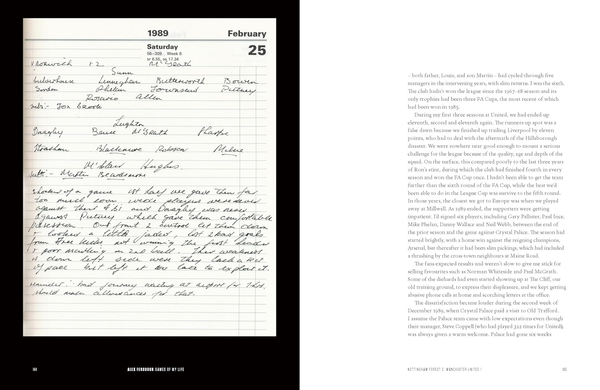 1989 February
Saturday
25
56-309 . Week 8
Norwich v 2 McGrath
Gunn
Culverhouse Linneghan Butterworth Bowen
Gordon Phelan Townsend Putney
Rosario Allen
subs - Fox Crook
Leighton
Donaghy Bruce McGrath Sharpe
Strachan Blackmore Robson Milne
McClair Hughes
Subs - Martin Beardsmore
of a game 1st half we gave them far
too much room, wide players were never
against their and Donaghy was never
against Putney which gave them comfortable
possession. Our front 2 instead let them down
lost 2 bad goals
from free kicks not winning the first header
& poor marking in 2nd ball. Their weakness
is down left side were they lack a bit
of pace but left it too late to exploit it.
reminder: bad journey waiting at airport for 1 hr,
should make allowances for that.
ALEX FERGUSON GAMES OF MY LIFE
– both father, Louis, and son Martin – had cycled through five
managers in the intervening years, with slim returns. I was the sixth.
The club hadn't won the league since the 1967–68 season and its
only trophies had been three FA Cups, the most recent of which
had been won in 1985.
During my first three seasons at United, we had ended up
eleventh, second and eleventh again. The runners-up spot was a
false dawn because we finished up trailing Liverpool by eleven
points, who had to deal with the aftermath of the Hillsborough
disaster. We were nowhere near good enough to mount a serious
challenge for the league because of the quality, age and depth of the
squad. On the surface, this compared poorly to the last three years
of Ron's stint, during which the club had finished fourth in every
season and won the FA Cup once. I hadn't been able to get the team
further than the sixth round of the FA Cup, while the best we'd
been able to do in the League Cup was survive to the fifth round.
In those years, the closest we got to Europe was when we played
away at Millwall. As 1989 ended, the supporters were getting
impatient. I'd signed six players, including Gary Pallister, Paul Ince,
Mike Phelan, Danny Wallace and Neil Webb, between the end of
the prior season and the game against Crystal Palace. The season had
started brightly, with a home win against the reigning champions,
Arsenal, but thereafter it had been slim pickings, which had included
a thrashing by the cross town neighbours at Maine Road.
The fans expected results and weren't slow to give me stick for
selling favourites such as Norman Whiteside and Paul McGrath.
Some of the diehards had even started showing up at The Cliff, our
old training ground, to express their displeasure, and we kept getting
abusive phone calls at home and scorching letters at the office.
The dissatisfaction became louder during the second week of
December 1989, when Crystal Palace paid a visit to Old Trafford.
I assume the Palace team came with low expectations even though
their manager, Steve Coppell (who had played 322 times for United),
was always given a warm welcome. Palace had gone six weeks
NOTTINGHAM FOREST 0 MANCHESTER UNITED 1